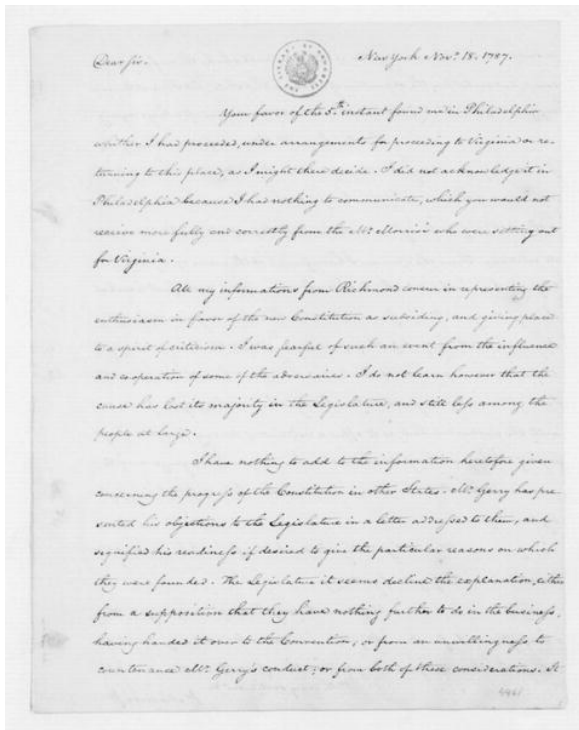 Dear Sir.
New York Novr. 18. 1787.
Your favor of the 5th. instant found me in Philadelphia
whither I had proceeded, under arrangements for proceeding to Virginia or re-
turning to this place, as I might there decide. I did not acknowledge it in
Philadelphia because I had nothing to communicate, which you would not
receive more fully and correctly from the Mr. Morris's who were setting out
for Virginia.
All my informations from Richmond concur in representing the
enthusiasm in favor of the new Constitution as subsiding, and giving place
to a spirit of criticism. I was fearful of such an event from the influence
and co-operation of some of the adversaries. I do not learn however that the
cause has lost its majority in the Legislature, and still less among the
people at large.
I have nothing to add to the information heretofore given
concerning the progress of the Constitution in other States. Mr. Gerry has pre-
sented his objections to the Legislature in a letter addressed to them, and
signified his readiness if desired to give the particular reasons on which
they were founded. The Legislature it seems decline the explanation, either
from a supposition that they have nothing further to do in the business,
having handed it over to the Convention; or from an unwillingness to
countenance Mr. Gerry's conduct; or from both of these considerations. It